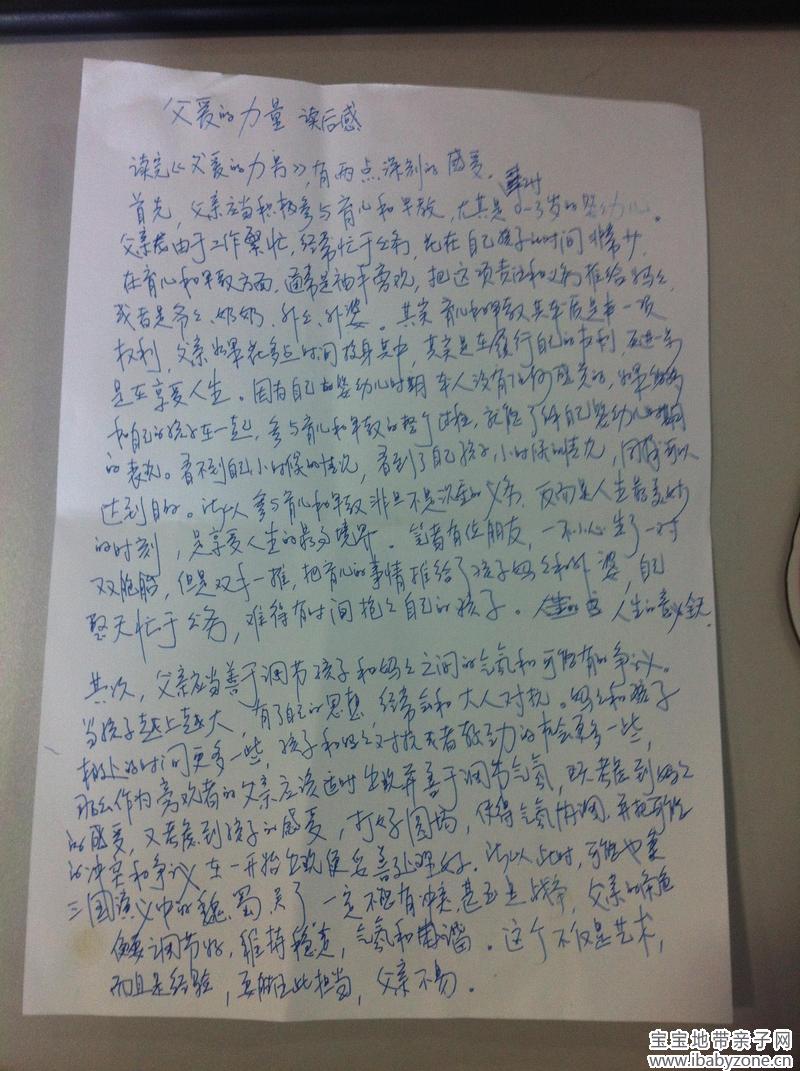 父爱的力量 读后感
读完《父爱的力量》,有两点深刻的感受。
首先,父亲应当积极参与育儿和早教,尤其是对0-3岁的婴幼儿。
父亲由于工作繁忙,经常忙于公务,花在自己孩子的时间非常少,
在育儿和早教方面,通常是袖手旁观,把这项责任和义务推给妈妈
或者是爷爷、奶奶、外公、外婆。其实育儿和早教其实质是一项
权利,父亲如果花多点时间投身其中,其实是在履行自己的权利,更进一步
是在享受人生。因为自己的婴幼儿时期本人没有任何感觉的,如果能够
和自己的孩子在一起,参与育儿和早教的整个过程,就能了解自己婴幼儿时期
的表现。看不到自己小时候的情况,看到了自己孩子小时候的情况,同样可以
达到目的。所以参与育儿和早教非但不是沉重的义务,反而是人生最美妙
的时刻,是享受人生的最高境界。笔者有位朋友,一不小心生了一对
双胞胎,但是双手一推,把育儿的事情推给了孩子妈妈和外婆,自己
整天忙于公务,难得有时间抱抱自己的孩子。人生的意义全无
其次,父亲应当善于调节孩子和妈妈之间的气氛和可能有的争议。
当孩子越来越大,有了自己的思想,经常会和大人对抗。妈妈和孩子
相处的时间更多一些,孩子和妈妈对抗或者敌动的机会更多一些,
那么作为旁观者的父亲应该适时出现并善于调节气氛,既考虑到妈妈
的感受,又考虑到孩子的感受,打好圆场,使得气氛协调,并把可能
的冲突和争议在一开始出现便妥善处理好。所以此时,可能也象
三国演义中的魏、蜀、吴了 一定不能有冲突,甚至是战争,父亲的角色
便要调节好,维持稳定,气氛和谐。这个不仅是艺术,
而且是经验,要胜任此担当,父亲不易。
宝宝地带亲子网
www.ibabyzone.cn